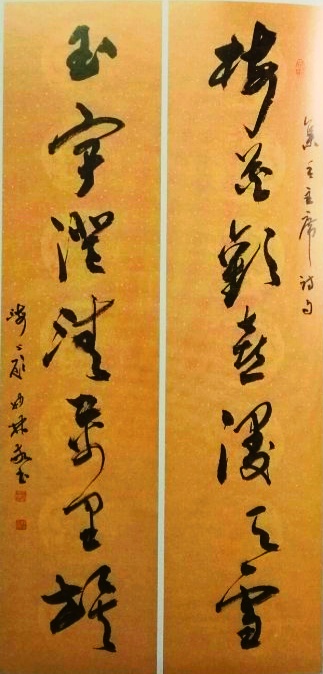 集毛主席詩句
梅花歡喜漫天雪
玉宇澄清萬里埃